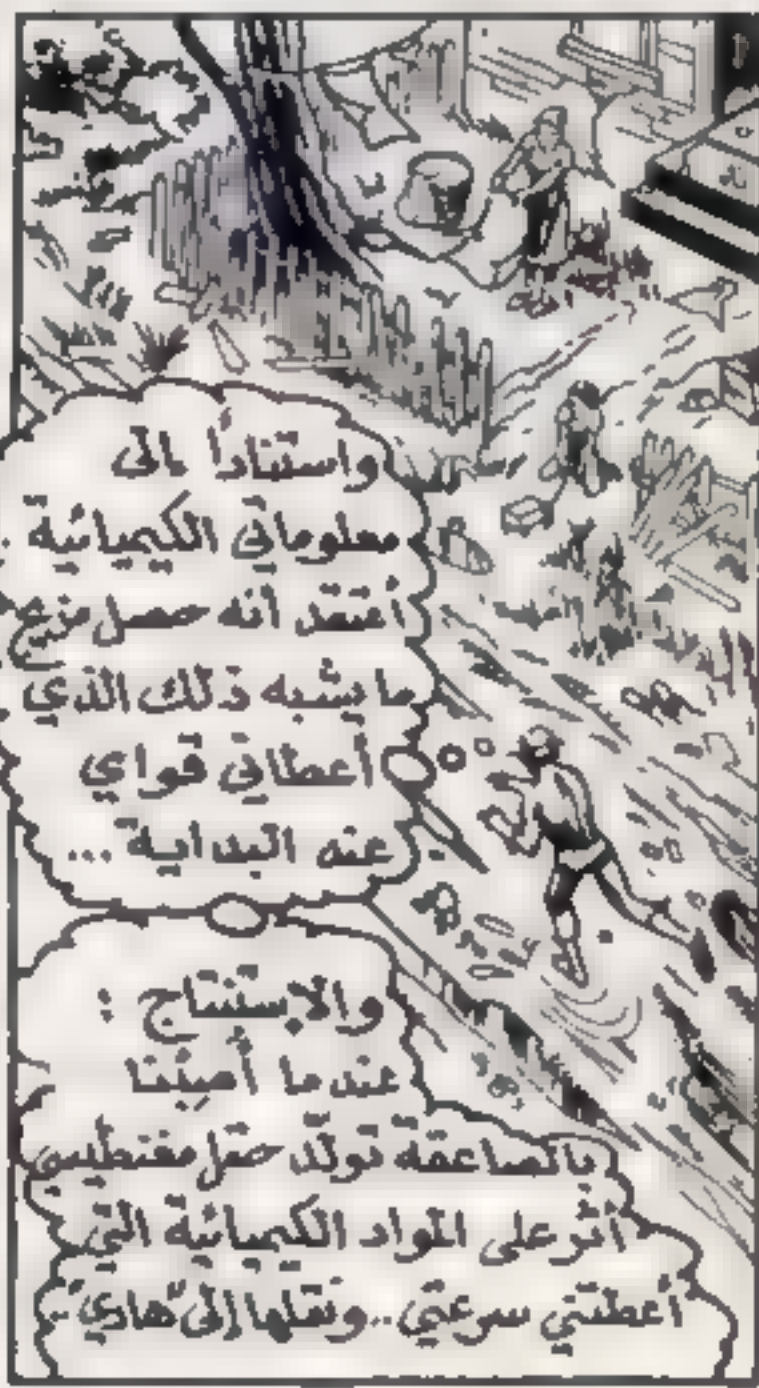 واستناداً الى
معلوماتي الكيميائية .
أعتقد أنه حصل مزيج
ما يشبه ذلك الذي
أعطاني قواي
عند البداية ...
والإستنتاج :
عندما أُصِبْنا
بالصاعقة تولّد حقل مغنطيسي
أثّر على المواد الكيميائية التي
أعطتني سرعتي .. ونقلها إلى "هادي".